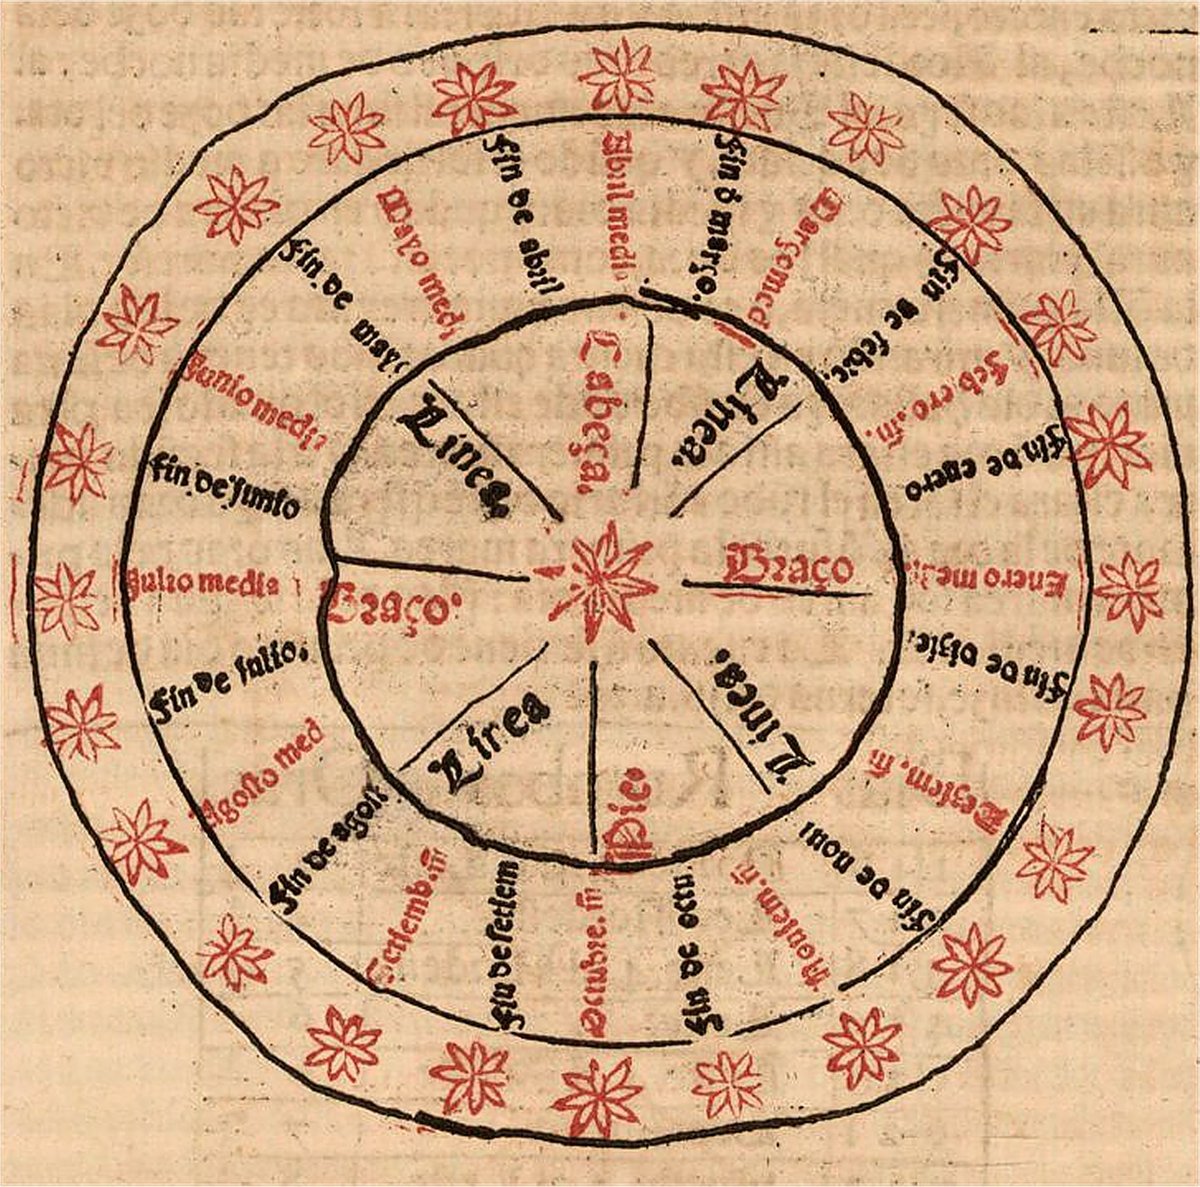 Abril media
fin de abril
Mayo medi
fin. de mayo
Junio medi
fin. de junio
Julio media
fin de julio.
Agosto med
fin de agost
Setiemb. m
fin de setiem
fin de octu
Nouiem. m
fin de noui
Deziem. m
fin de dizie.
Enero me.
fin de enero
Febrero. m
fin de febre.
Março med
fin d março.
Cabeça,
Linea.
Braço.
Linea
Pie.
Linea.
Braço
Linea.